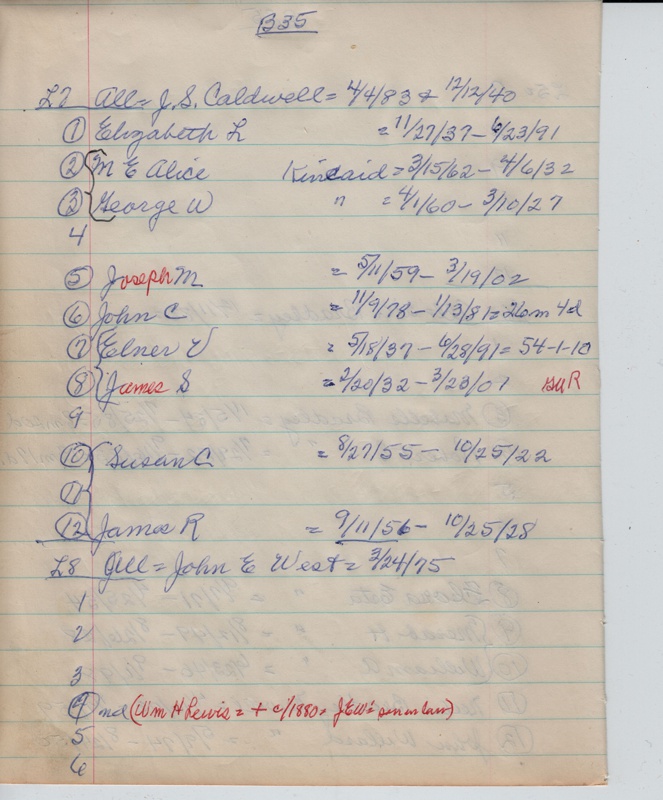 B35
L7 All = J.S. Caldwell = 4/4/83 & 12/12/40
① Elizabeth L = 11/27/37 – 6/23/91
② M E Alice Kincaid = 3/15/62 – 4/6/32
③ George W " = 4/1/60 – 3/10/27
4
⑤ Joseph M = 5/11/59 – 3/19/02
⑥ John C = 11/9/78 – 1/13/81 = 26m 4d
⑦ Elner V = 5/18/37 – 6/28/91 = 54-1-10
⑧ James S = 2/20/32 – 3/23/01
9
⑩ Susan C = 8/27/55 – 10/25/22
⑪
⑫ James R = 9/11/56 – 10/25/28
L8 All = John E West = 3/24/75
1
2
3
④ nd (Wm H Lewis = + c/1880 = JEW's son in law)
5
6